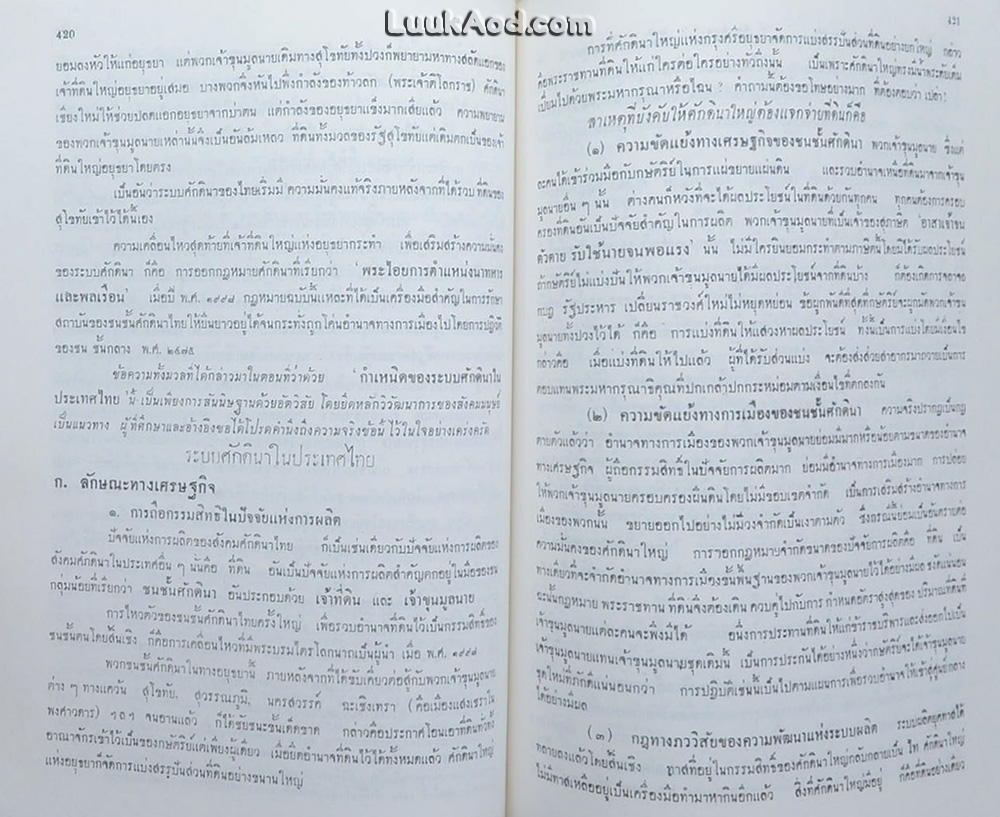 LuukAod.com
420
ยอมลงหัวให้แก่อยุธยา แต่พวกเจ้าขุนมูลนายเดิมทางสุโขทัยทั้งปวงก็พยายามหาทางสลัดแอกของ
เจ้าที่ดินใหญ่อยุธยาอยู่เสมอ บางพวกจึงหันไปพึ่งกำลังของท้าวลก (พระเจ้าติโลกราช) ศักดินา
เชียงใหม่ให้ช่วยปลดแอกอยุธยาจากบ่าตน แต่กำลังของอยุธยาแข็งมากเสียแล้ว ความพยายาม
ของพวกเจ้าขุนมูลนายเหล่านั้นจึงเป็นอันล้มเหลว ที่ดินทั้งมวลของรัฐสุโขทัยแต่เดิมตกเป็นของเจ้า
ที่ดินใหญ่อยุธยาโดยตรง
เป็นอันว่าระบบศักดินาของไทยเริ่มมี ความมั่นคงแท้จริงภายหลังจากที่ได้รวบ ที่ดินของ
สุโขทัยเข้าไว้ได้นั้นเอง
ความเคลื่อนไหวสุดท้ายที่เจ้าที่ดินใหญ่แห่งอยุธยากระทำ เพื่อเสริมสร้างความมั่นคง
ของระบบศักดินา ก็คือ การออกกฎหมายศักดินาที่เรียกว่า ‘พระไอยการตำแหน่งนาทหาร
และพลเรือน’ เมื่อปี พ.ศ. ๑๙๙๘ กฎหมายฉบับนี้แหละที่ได้เป็นเครื่องมือสำคัญในการรักษา
สถาบันของชนชั้นศักดินาไทยให้ยืนยาวอยู่ได้จนกระทั่งถูกโค่นอำนาจทางการเมืองไปโดยการปฏิวัติ
ของชน ชั้นกลาง พ.ศ. ๒๔๗๕
ข้อความทั้งมวลที่ได้กล่าวมาในตอนที่ว่าด้วย ‘กำเหนิดของระบบศักดินาใน
ประเทศไทย’ นี้ เป็นเพียงการสันนิษฐานด้วยอัตวิสัย โดยยึดหลักวิวัฒนาการของสังคมมนุษย์
เป็นแนวทาง ผู้ที่ศึกษาและอ้างอิงขอได้โปรดคำนึงถึงความจริงข้อนี้ ไว้ในใจอย่างเคร่งครัด
ระบบศักดินาในประเทศไทย
ก. ลักษณะทางเศรษฐกิจ
๑. การถือกรรมสิทธิ์ในปัจจัยแห่งการผลิต
ปัจจัยแห่งการผลิตของสังคมศักดินาไทย ก็เป็นเช่นเดียวกับปัจจัยแห่งการผลิตของ
สังคมศักดินาในประเทศอื่น ๆ นั่นคือ ที่ดิน อันเป็นปัจจัยแห่งการผลิตสำคัญตกอยู่ในมือของชน
กลุ่มน้อยที่เรียกว่า ชนชั้นศักดินา อันประกอบด้วย เจ้าที่ดิน และ เจ้าขุนมูลนาย
การไหวตัวของชนชั้นศักดินาไทยครั้งใหญ่ เพื่อรวบอำนาจที่ดินไว้เป็นกรรมสิทธิ์ของ
ชนชั้นตนโดยสิ้นเชิง ก็คือการเคลื่อนไหวที่มีพระบรมไตรโลกนาถเป็นผู้นำ เมื่อ พ.ศ. ๑๙๙๘
พวกชนชั้นศักดินาในทางอยุธยานี้ ภายหลังจากที่ได้ขับเคี่ยวต่อสู้กับพวกเจ้าขุนมูลนาย
ต่าง ๆ ทางแคว้น สุโขทัย, สุวรรณภูมิ, นครสวรรค์ ฉะเชิงเทรา (คือเมืองแสงเชราใน
พงศาวดาร) ฯลฯ จนอานแล้ว ก็ได้ชัยชนะขั้นเด็ดขาด กล่าวคือประกาศโอนเอาที่ดินทั่วทั้ง
อาณาจักรเข้าไว้เป็นของกษัตริย์แต่เพียงผู้เดียว เมื่อยึดอำนาจที่ดินไว้ได้ทั้งหมดแล้ว ศักดินาใหญ่
แห่งอยุธยาก็จัดการแบ่งสรรปันส่วนที่ดินอย่างขนานใหญ่
421
การที่ศักดินาใหญ่แห่งกรุงศรีอยุธยาจัดการแบ่งสรรปันส่วนที่ดินอย่างยกใหญ่ กล่าว
คือพระราชทานที่ดินให้แก่ใครต่อใครอย่างทั่วถึงนั้น เป็นเพราะศักดินาใหญ่ทรงมีน้ำพระทัยเต็ม
เปี่ยมไปด้วยพระมหากรุณาหรือไฉน? คำถามนี้ต้องขอโทษอย่างมาก ที่ต้องตอบว่า เปล่า!
สาเหตุที่บังคับให้ศักดินาใหญ่ต้องแจกจ่ายที่ดินก็คือ
(๑) ความขัดแย้งทางเศรษฐกิจของชนชั้นศักดินา พวกเจ้าขุนมูลนาย ซึ่งแต่
ละคนได้เข้าร่วมมือกับกษัตริย์ในการแผ่ขยายแผ่นดิน และรวบอำนาจเหนือที่ดินมาจากเจ้าขุน
มูลนายอื่น ๆ นั้น ต่างคนก็หวังที่จะได้ผลประโยชน์ในที่ดินด้วยกันทุกคน ทุกคนต้องการครอบ
ครองที่ดินอันเป็นปัจจัยสำคัญในการผลิต พวกเจ้าขุนมูลนายที่เป็นเจ้าของสุภาษิต ‘อาสาเจ้าจน
ตัวตาย รับใช้นายจนพอแรง’ นั้น ไม่มีใครยินยอมกระทำตามภาษิตนี้โดยมิได้รับผลประโยชน์
ถ้ากษัตริย์ไม่แบ่งปันให้พวกเจ้าขุนมูลนายได้มีผลประโยชน์จากที่ดินบ้าง ก็ต้องเกิดการจลาจล
กบฏ รัฐประหาร เปลี่ยนราชวงค์ใหม่ไม่หยุดหย่อน ข้อผูกพันที่ดีที่สุดที่กษัตริย์จะผูกมัดพวกเจ้าขุน
มูลนายทั้งปวงไว้ได้ ก็คือ การแบ่งที่ดินให้แสวงหาผลประโยชน์ ทั้งนี้เป็นการแบ่งโดยมีเงื่อนไข
กล่าวคือ เมื่อแบ่งที่ดินให้ไปแล้ว ผู้ที่ได้รับส่วนแบ่ง จะต้องส่งส่วยสาอากรมาถวายเป็นการ
ตอบแทนพระมหากรุณาธิคุณที่ปกเกล้าปกกระหม่อมตามเงื่อนไขที่ตกลงกัน
(๒) ความขัดแย้งทางการเมืองของชนชั้นศักดินา ความจริงปรากฏเป็นกฎ
ตายตัวแล้วว่า อำนาจทางการเมืองของพวกเจ้าขุนมูลนายย่อมมีมากหรือน้อยตามขนาดของอำนาจ
ทางเศรษฐกิจ ผู้ถือกรรมสิทธิ์ในปัจจัยการผลิตมาก ย่อมมีอำนาจทางการเมืองมาก การปล่อย
ให้พวกเจ้าขุนมูลนายครอบครองผืนดินโดยไม่มีขอบเขตจำกัด เป็นการเสริมสร้างอำนาจทางการ
เมืองของพวกนั้น ขยายออกไปอย่างไม่มีวงจำกัดเป็นเงาตามตัว ซึ่งกรณีนี้ย่อมเป็นอันตรายต่อ
ความมั่นคงของศักดินาใหญ่ การออกกฎหมายจำกัดขนาดของปัจจัยการผลิตคือ ที่ดิน เป็น
ทางเดียวที่จะจำกัดอำนาจทางการเมืองขั้นพื้นฐานของพวกเจ้าขุนมูลนายไว้ได้อย่างมีผล ด้วยเหตุ
ฉะนั้นกฎหมาย พระราชทาน ที่ดินจึงต้องเดิน ควบคู่ไปกับการ กำหนดอัตราสูงสุดของ ปริมาณที่ดินที่
เจ้าขุนมูลนายแต่ละคนจะพึงมีได้ อนึ่งการประทานที่ดินให้แก่ข้าราชบริพารและส่งออกไปเป็น
เจ้าขุนมูลนายแทนเจ้าขุนมูลนายชุดเดิมนั้น เป็นการประกันได้อย่างหนึ่งว่ากษัตริย์จะได้เจ้าขุนมูลนาย
ชุดใหม่ที่ภักดีแน่นอนกว่า การปฏิบัติเช่นนี้เป็นไปตามแผนการเพื่อรวบอำนาจให้เข้าสู่ศูนย์กลาง
ได้อย่างมีผล
(๓) กฎทางภววิสัยของความพัฒนาแห่งระบบผลิต ระบบผลิตยุคทาสได้
ทลายลงแล้วโดยสิ้นเชิง ทาสที่อยู่ในกรรมสิทธิ์ของศักดินาใหญ่กลับกลายเป็น ไท ศักดินาใหญ่
ไม่มีทาสเหลืออยู่เป็นเครื่องมือทำมาหากินอีกแล้ว สิ่งที่ศักดินาใหญ่มีอยู่ ก็คือที่ดินอย่างเดียว